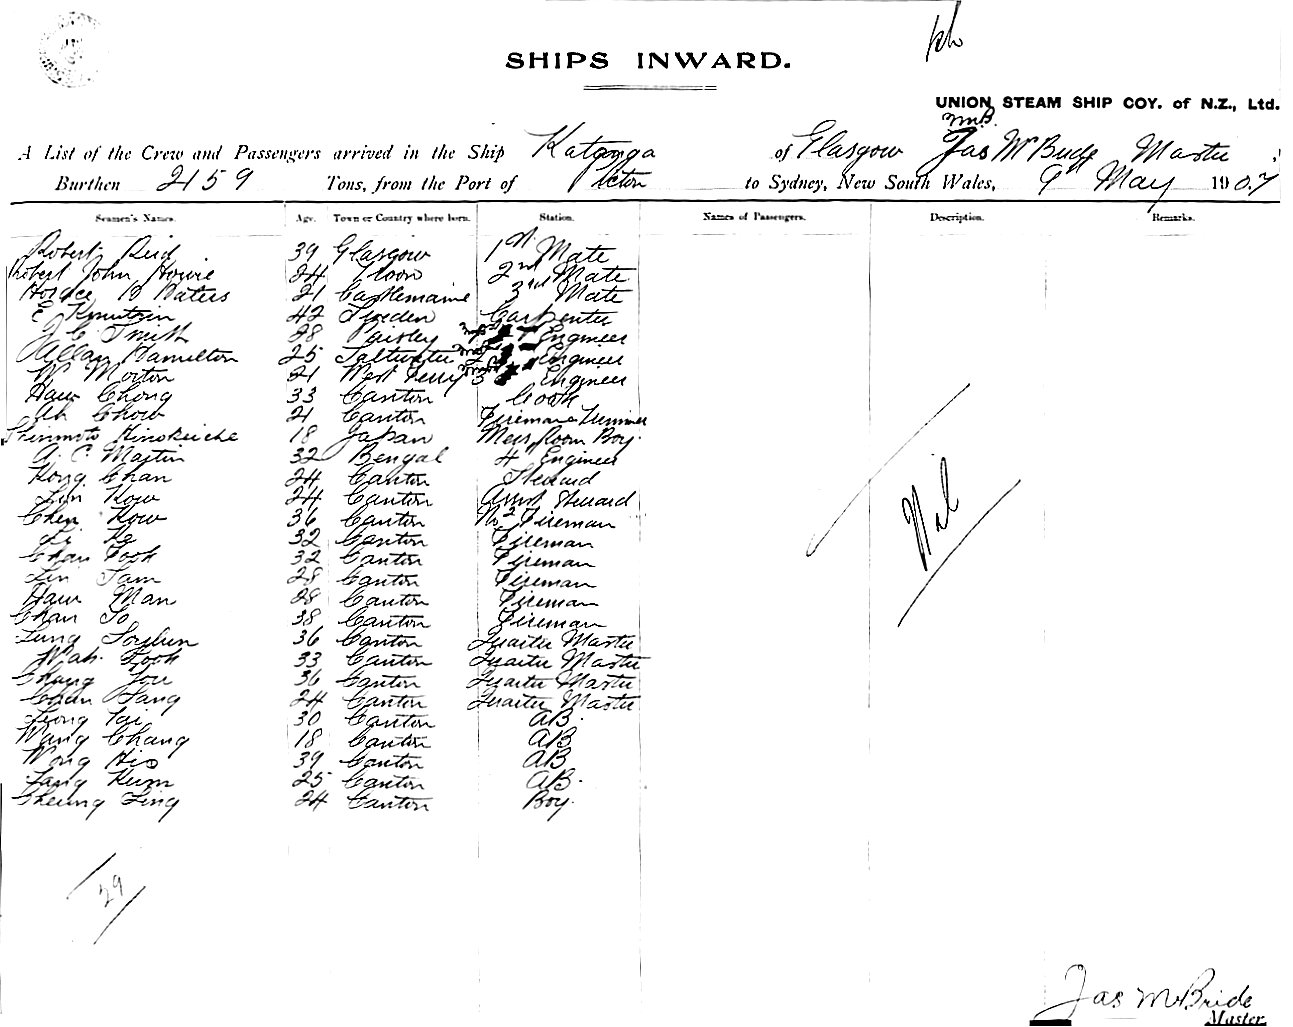 SHIPS INWARD.
UNION STEAM SHIP COY. of N.Z., Ltd.
A List of the Crew and Passengers arrived in the Ship Katanga of Glasgow Jas McBride Master
Burthen 2159 Tons, from the Port of Picton to Sydney, New South Wales, 9th May 1907
Seamen's Names. Age. Town or Country where born. Station. Names of Passengers. Description. Remarks.
Robert Reid 39 Glasgow 1st Mate
Robert John Howie 24 Troon 2nd Mate
Horace B Waters 21 Castlemaine 3rd Mate
E Knutzin 42 Sweden Carpenter
J C Smith 28 Paisley Engineer
Allan Hamilton 25 Saltwater 2 Engineer
W Morton 21 West Ferry 3 Engineer
Haw Chong 33 Canton Cook
Ah Chow 21 Canton Fireman & Trimmer
Shinmoto Kinokeiche 18 Japan Mess Room Boy.
A. C. Martin 32 Bengal 4 Engineer
Kong Chan 24 Canton Steward
Lin Kow 24 Canton Assist Steward
Chen Kow 36 Canton No 2 Fireman
Li Ke 32 Canton Fireman
Chan Fook 32 Canton Fireman
Lin Tam 28 Canton Fireman
Haw Man 28 Canton Fireman
Chan To 38 Canton Fireman
Lung 36 Canton Quarter Master
Wah Fook 33 Canton Quarter Master
Chang You 36 Canton Quarter Master
Chan Hang 24 Canton Quarter Master
Leong Tai 30 Canton AB.
Wang Chang 18 Canton AB
Wong His 39 Canton AB
Fang Kum 25 Canton AB.
Cheung Ling 24 Canton Boy.
Nil
29
Jas McBride
Master.